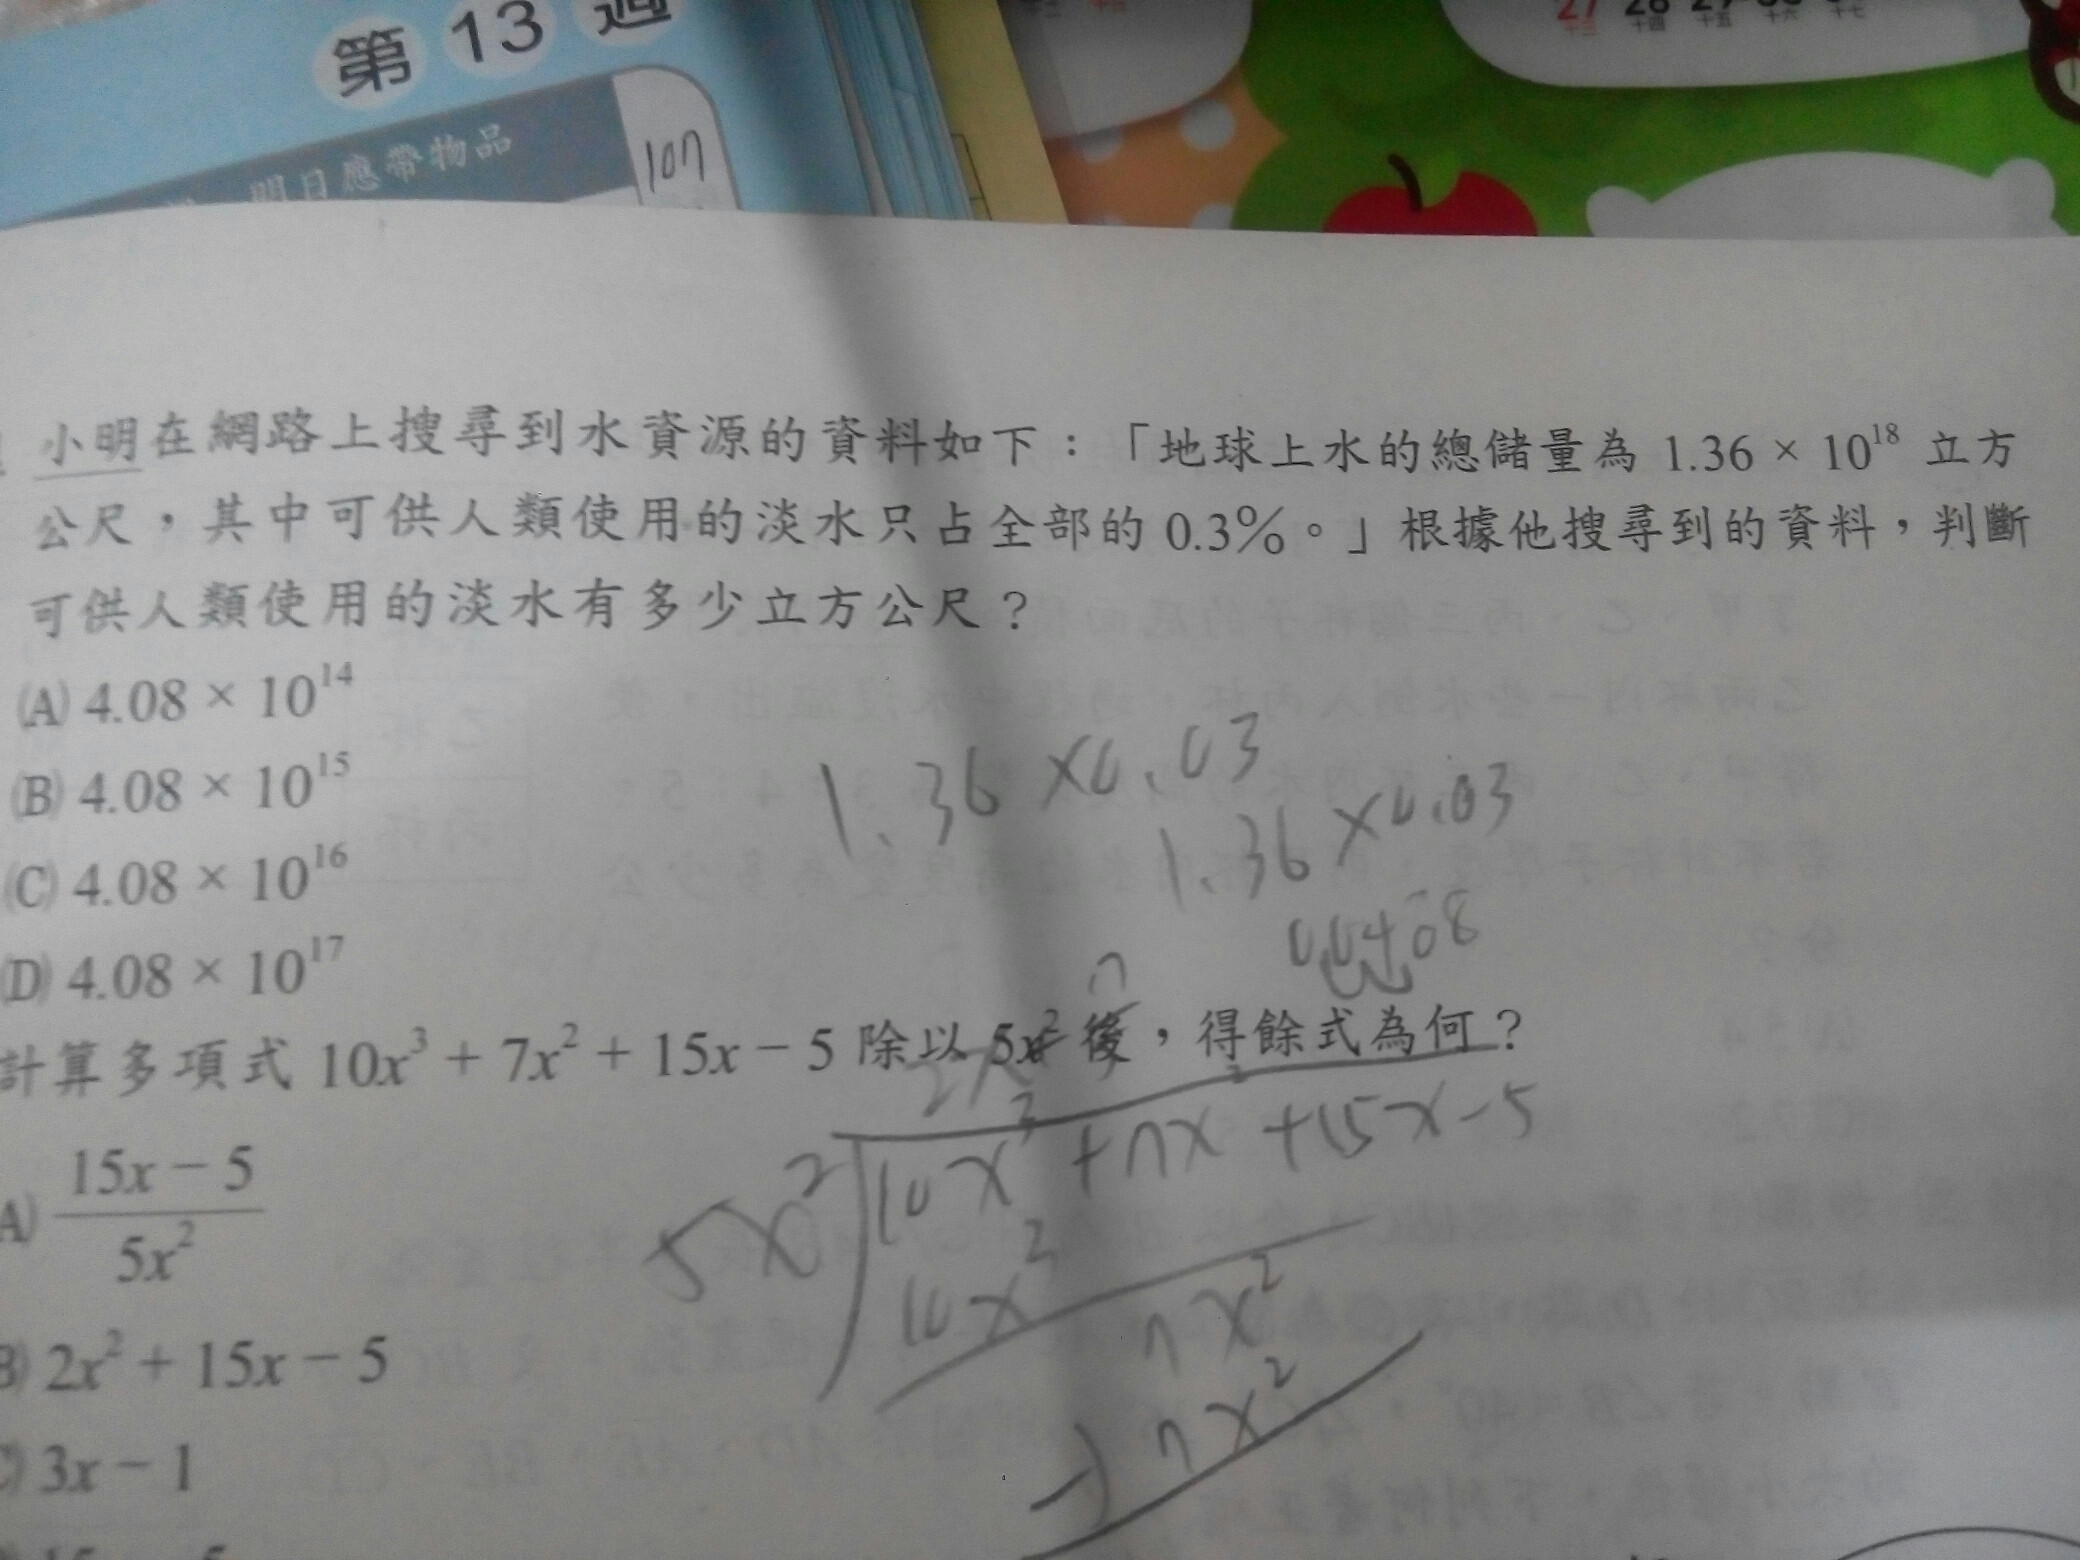 第 13 週
明日應帶物品
107
27 28 29
十三 十四 十五 十六 十七
小明在網路上搜尋到水資源的資料如下：「地球上水的總儲量為 1.36 × 10¹⁸ 立方
公尺，其中可供人類使用的淡水只占全部的 0.3%。」根據他搜尋到的資料，判斷
可供人類使用的淡水有多少立方公尺？
(A) 4.08 × 10¹⁴
(B) 4.08 × 10¹⁵
(C) 4.08 × 10¹⁶
(D) 4.08 × 10¹⁷
1.36 × 0.03
1.36 × 0.03
計算多項式 10x³ + 7x² + 15x − 5 除以 5x² 後，得餘式為何？
A) 15x − 5
5x²
B) 2x² + 15x − 5
C) 3x − 1
5x²
10x² + 7x² + 15x − 5
10x²
7x²
7x²